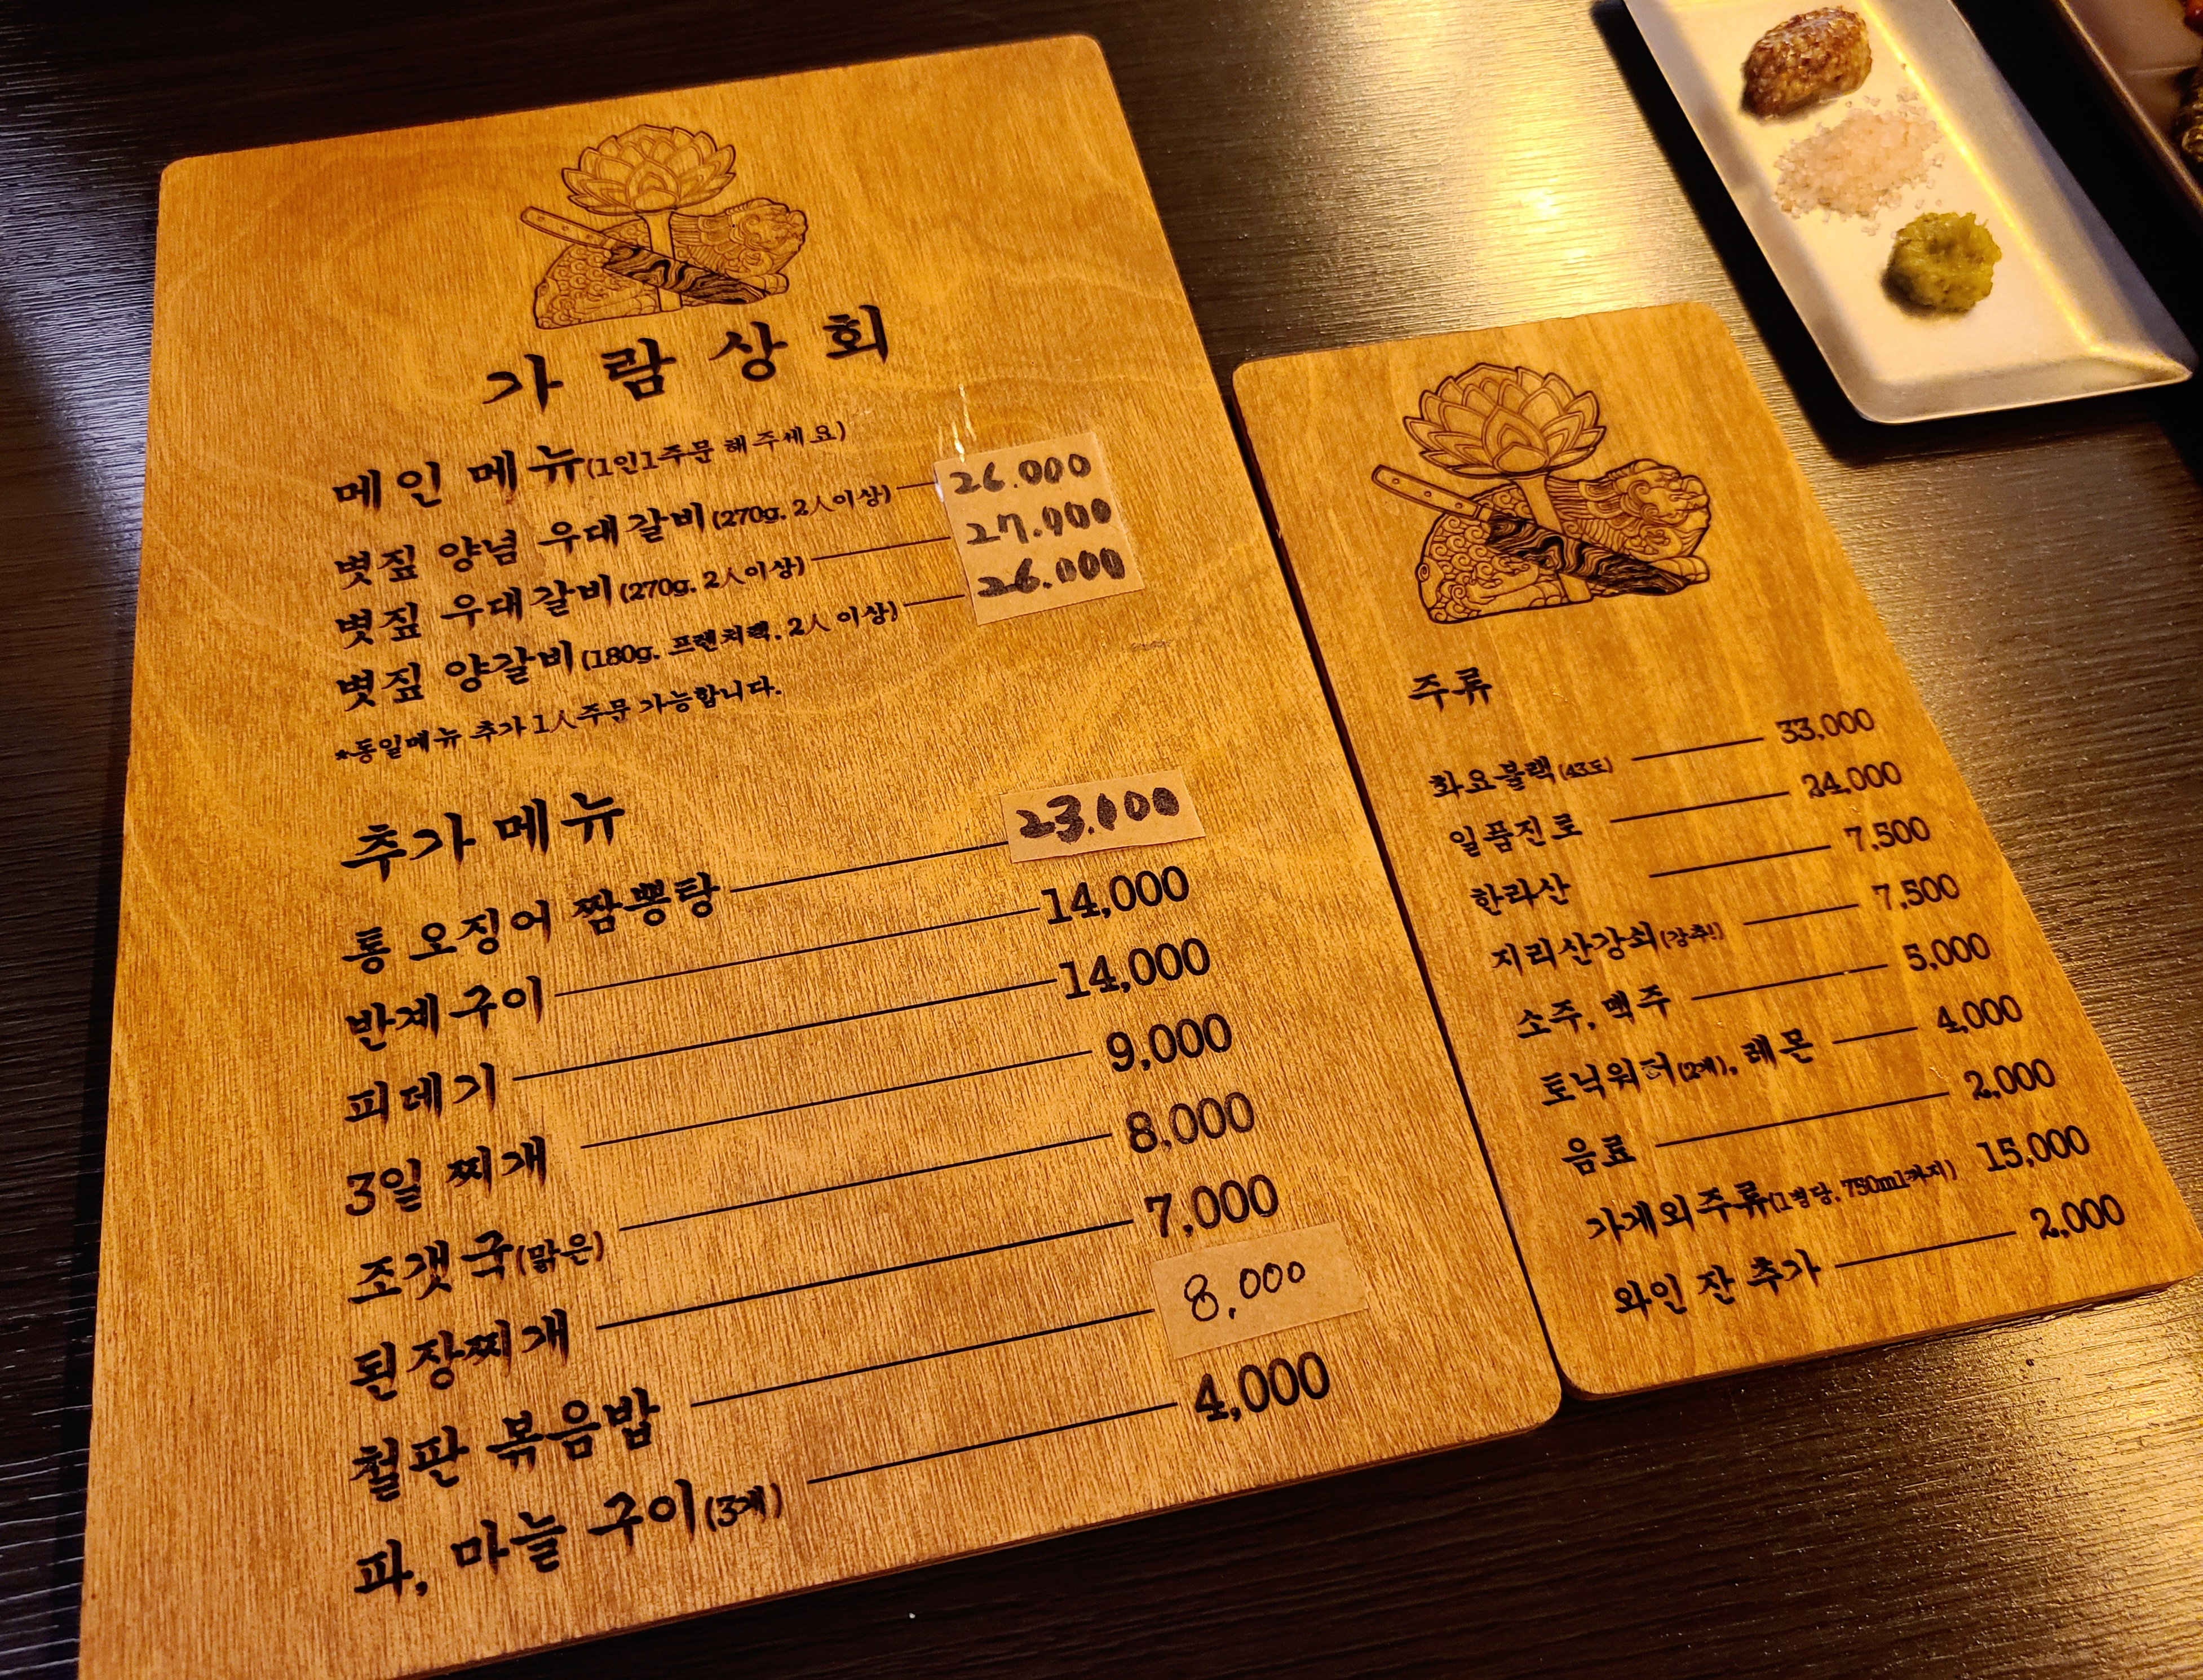 가람상회
메인 메뉴(1인1주문 해주세요)
볏짚 양념 우대갈비(270g, 2人이상) 26.000
볏짚 우대갈비(270g, 2人이상) 27.000
볏짚 양갈비(180g, 프렌치랙, 2人 이상) 26.000
*동일메뉴 추가 1人주문 가능합니다.
추가 메뉴
통 오징어 짬뽕탕 23.000
반계구이 14,000
피데기 14,000
3일 찌개 9,000
조갯국(맑은) 8,000
된장찌개 7,000
철판 볶음밥 8,000
파, 마늘 구이(3개) 4,000
주류
화요블랙(43도) 33,000
일품진로 24,000
한라산 7,500
지리산강쇠(강추!) 7,500
소주, 맥주 5,000
토닉워터(2개), 레몬 4,000
음료 2,000
가게외주류(1병당, 750ml까지) 15,000
와인 잔 추가 2,000